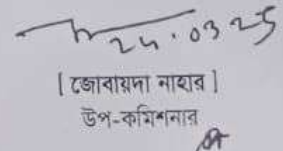 24.03.25
[জোবায়দা নাহার]
উপ-কমিশনার